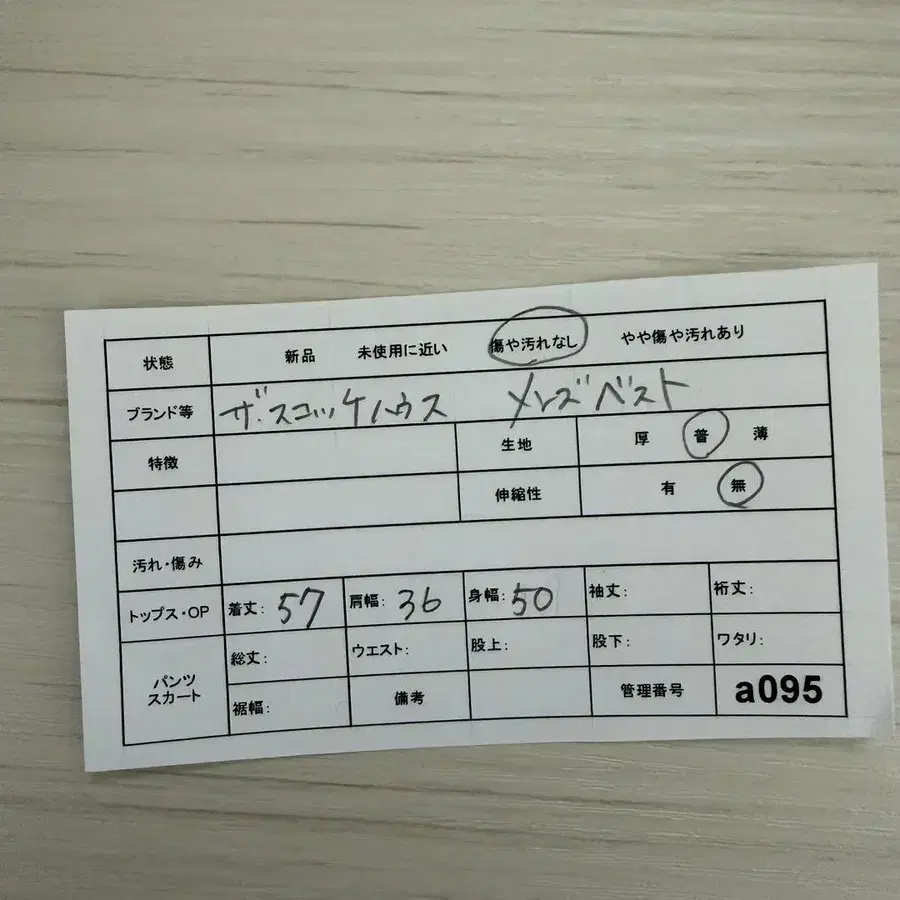 状態 新品 未使用に近い 傷や汚れなし やや傷や汚れあり
ブランド等 ザ・スコッケハウス メンズベスト
特徴 生地 厚 普 薄
伸縮性 有 無
汚れ・傷み
トップス・OP 着丈: 57 肩幅: 36 身幅: 50 袖丈: 裄丈:
パンツ スカート 総丈: ウエスト: 股上: 股下: ワタリ:
裾幅: 備考 管理番号 a095